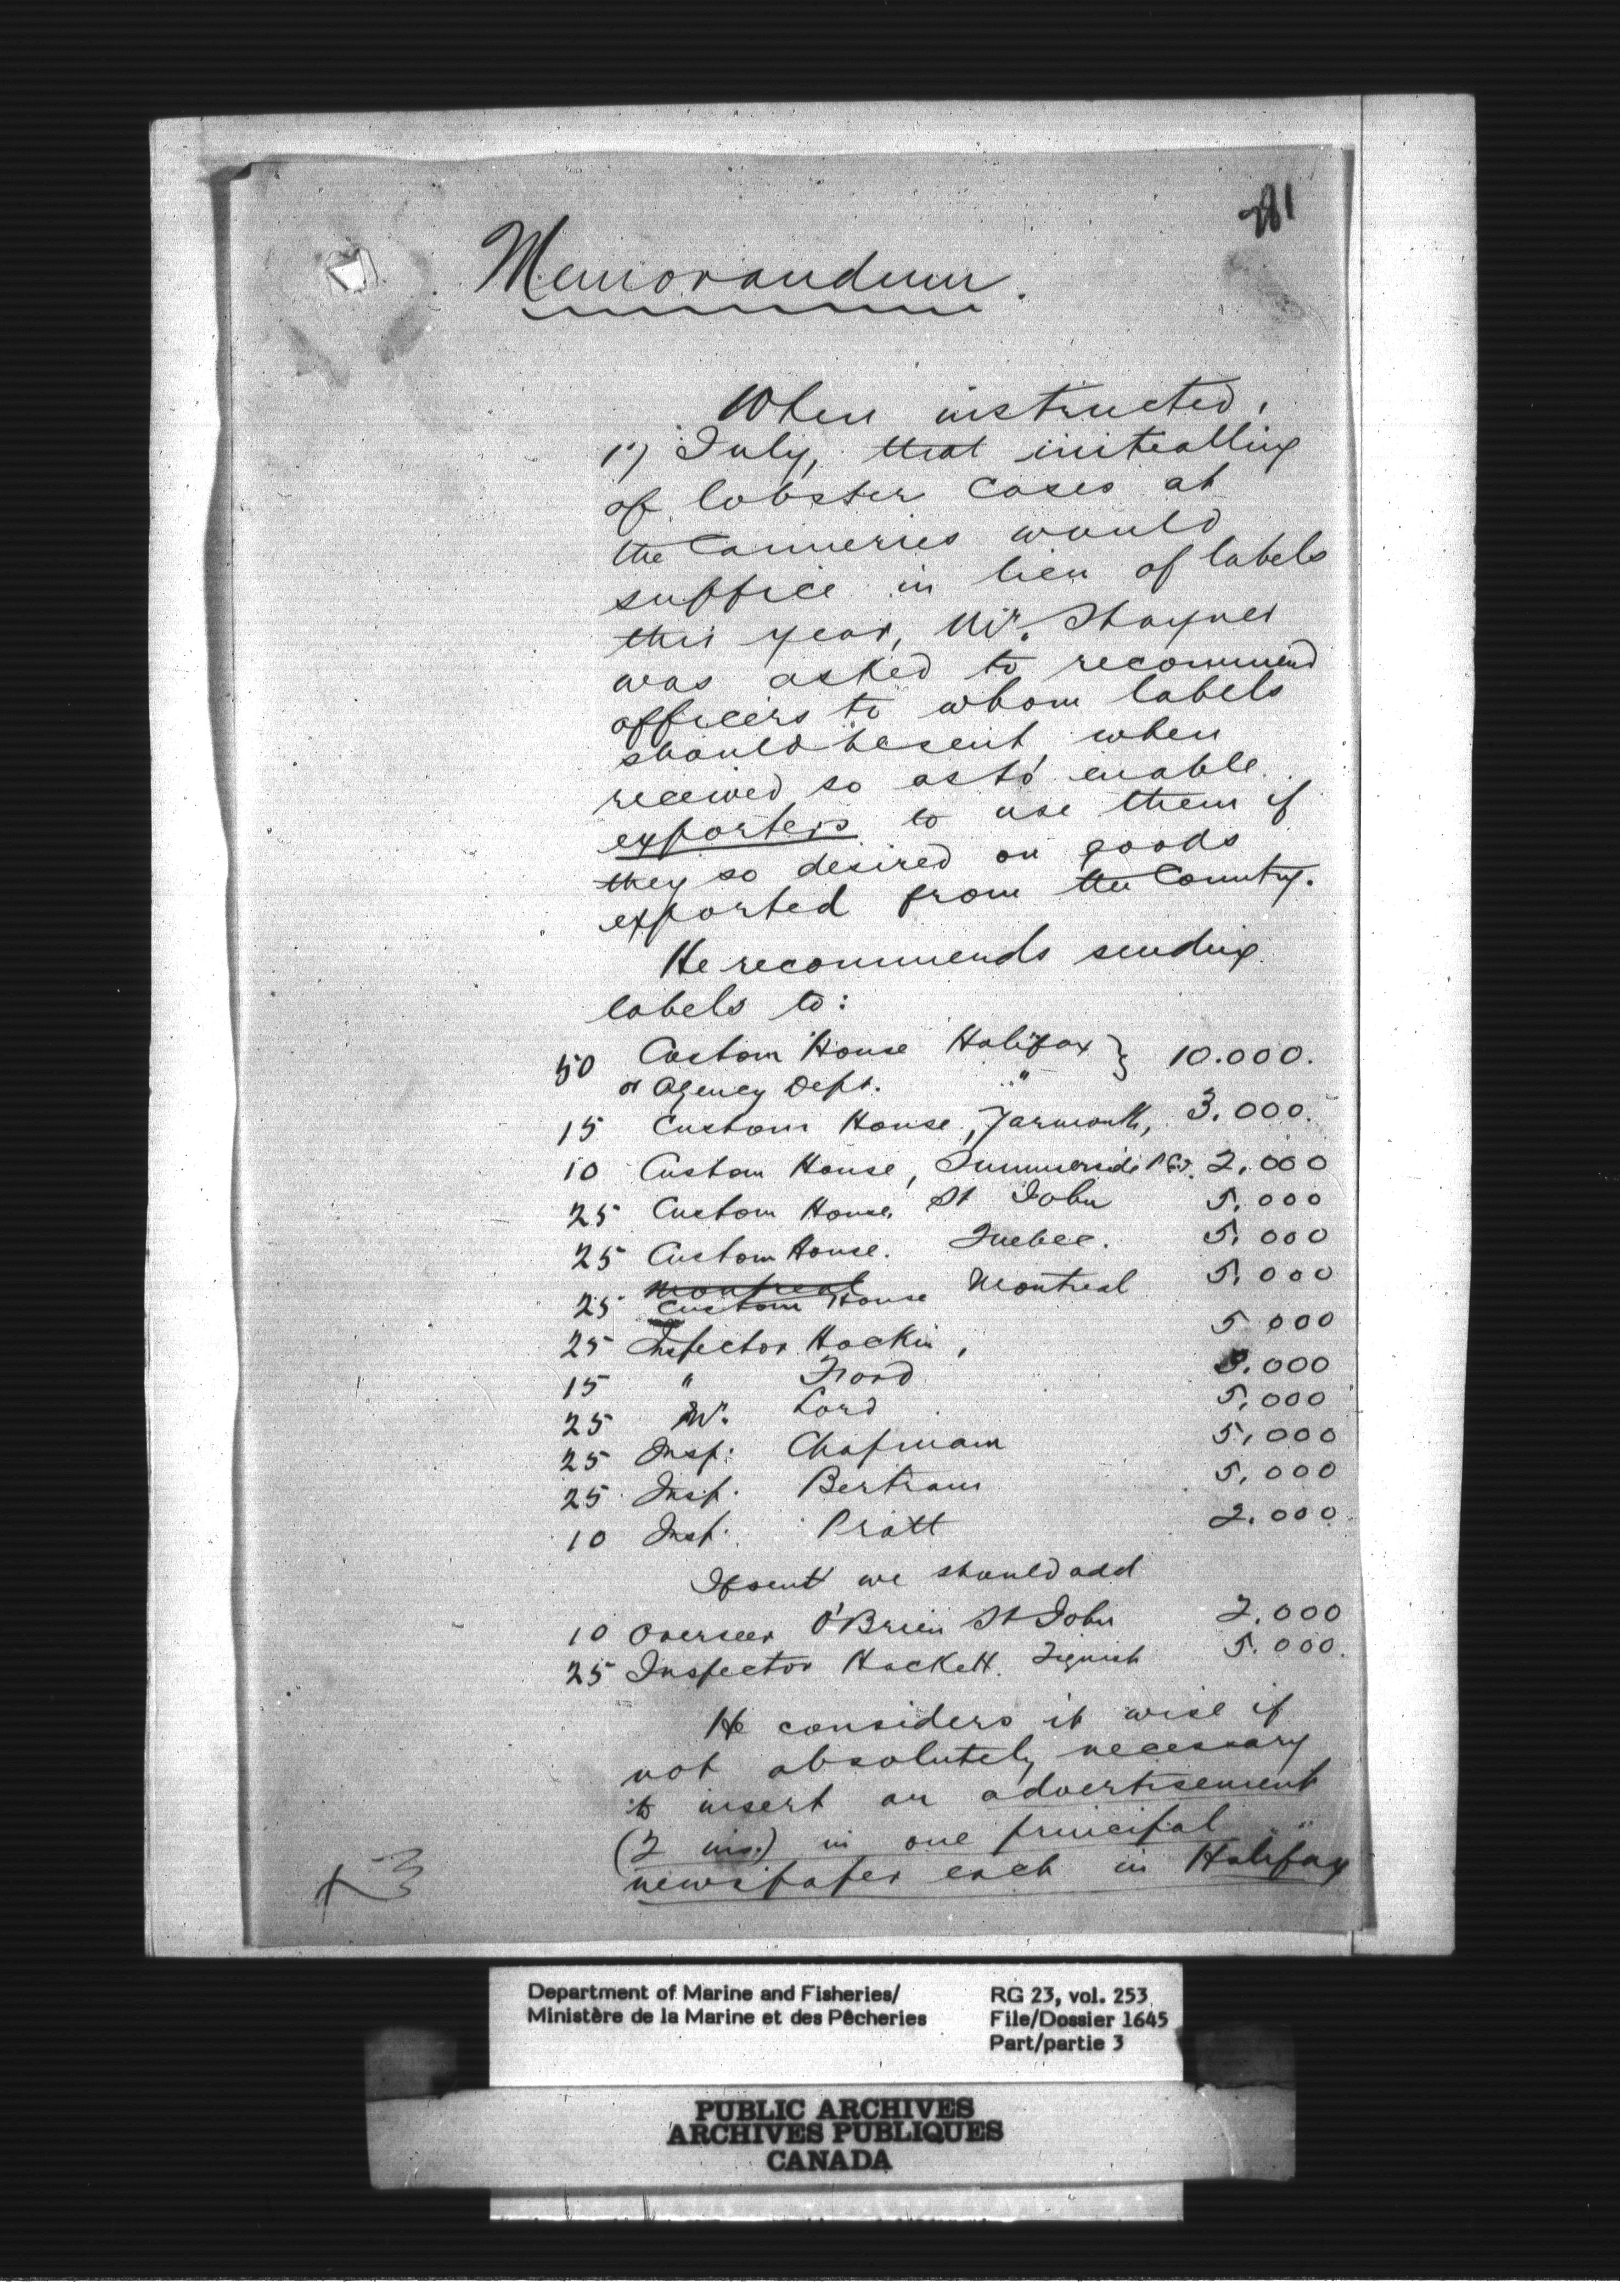 281
Memorandum.
When instructed,
17 July, that initialling
of lobster cases at
the Canneries would
suffice in lieu of labels
this year, Mr. Shaynes
was asked to recommend
officers to whom labels
should be sent when
received so as to enable
exporters to use them if
they so desired on goods
exported from the Country.
He recommends sending
labels to:
50 Custom House Halifax } 10.000.
or Agency Dept. "
15 Custom House, Yarmouth, 3.000.
10 Custom House, Summerside P.E.I. 2.000
25 Custom House, St John 5.000
25 Custom House. Quebec. 5.000
Montreal
25 Custom House Montreal 5.000
25 Inspector Hockin, 5000
15 " Ford 3.000
25 Mr. Lord 5,000
25 Insp: Chapman 5,000
25 Insp. Bertram 5,000
10 Insp. Pratt 2.000
If sent we should add
10 Overseer O'Brien St John 2.000
25 Inspector Hackett. Tignish 5.000.
He considers it wise if
not absolutely necessary
to insert an advertisement
(2 ins.) in one principal
newspaper each in Halifax
Department of Marine and Fisheries/
Ministère de la Marine et des Pêcheries
RG 23, vol. 253
File/Dossier 1645
Part/partie 3
PUBLIC ARCHIVES
ARCHIVES PUBLIQUES
CANADA